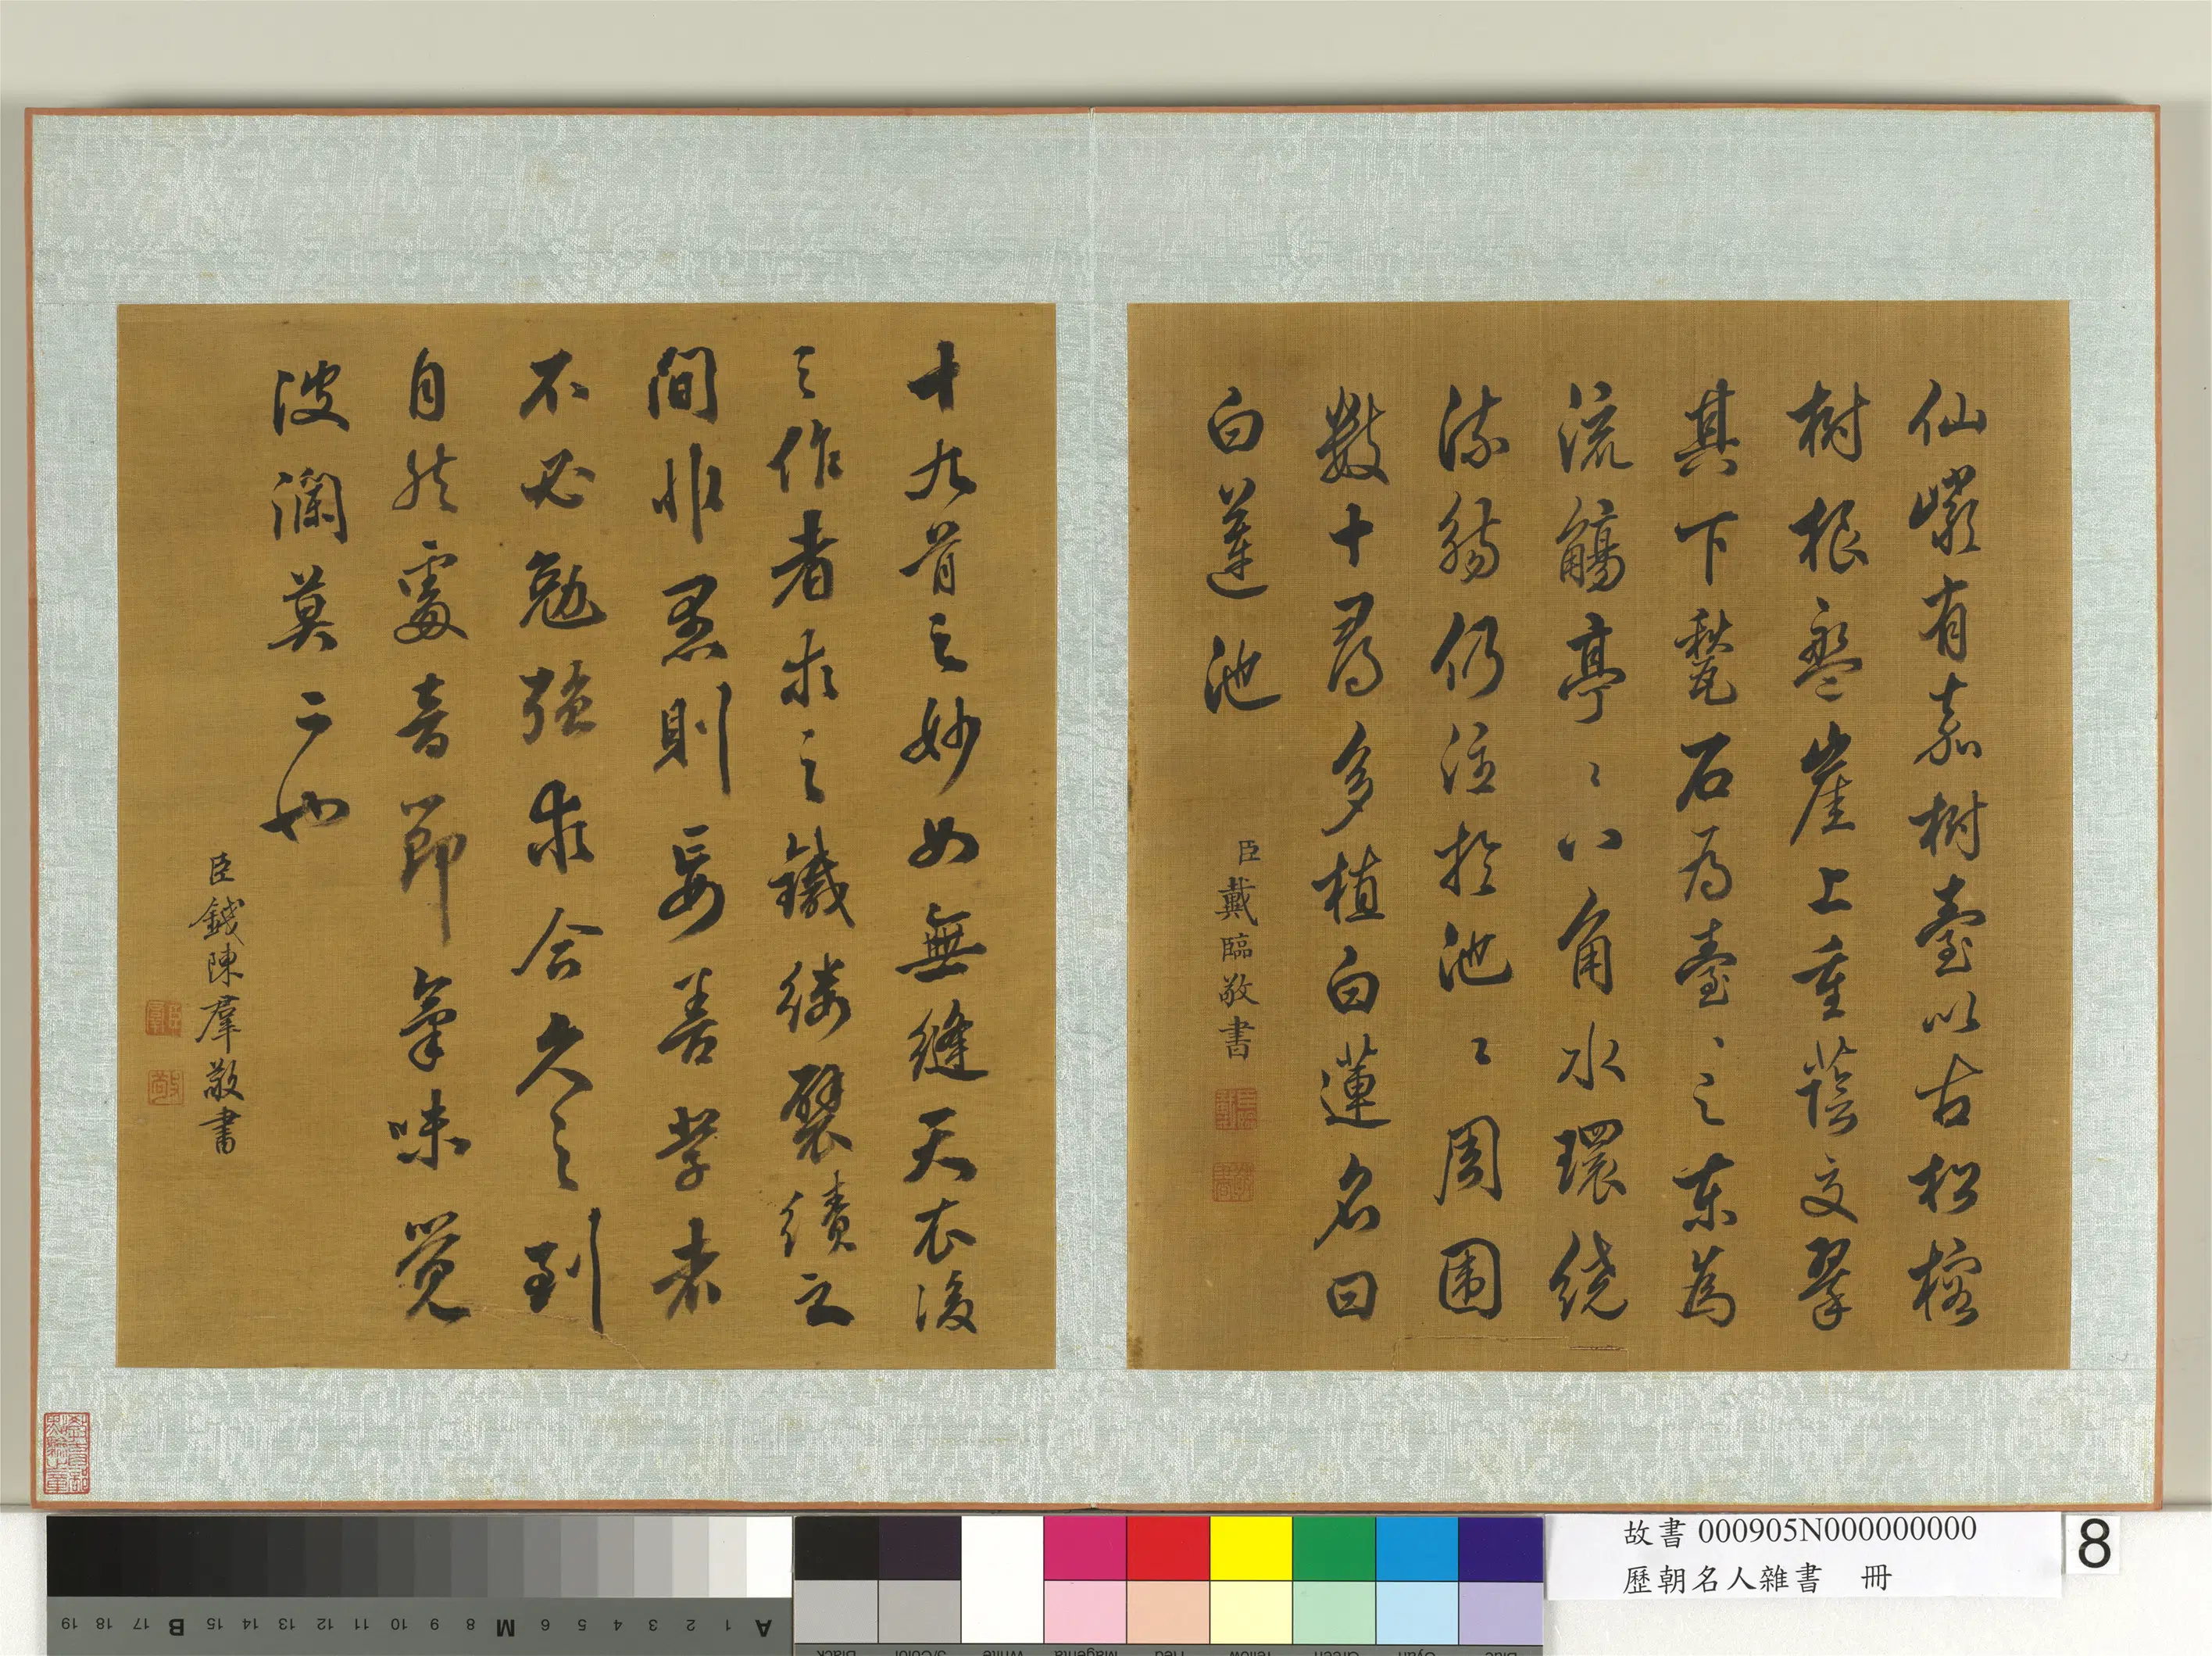 仙巖有嘉樹臺以古松榕
樹根盤崖上重蔭交翠
其下甃石為臺、之東為
流觴亭〻八角水環繞
流觴仍注於池〻周圍
數十尋多植白蓮名曰
白蓮池
臣戴臨敬書
十九首之妙如無縫天衣後
之作者求之鍼縷襞績之
間非愚則妄善學者
不必勉強求合久之到
自然處音節氣味覺
波瀾莫二也
臣錢陳羣敬書
故書 000905N000000000
歷朝名人雜書 冊
8
A 1 2 3 4 5 6 M 8 9 10 11 12 13 14 15 B 17 18 19
Black 3/Color White Magenta Red Yellow Green Cyan Blue